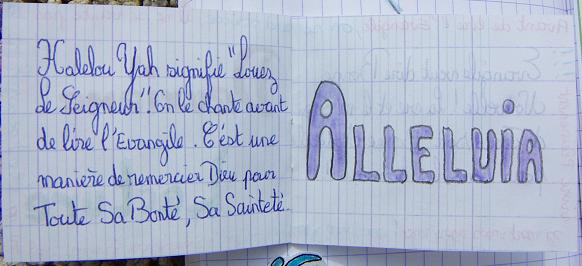 Halelou Yah signifie "Louez
Le Seigneur". On le chante avant
de lire l'Evangile. C'est une
manière de remercier Dieu pour
Toute Sa Bonté, Sa Sainteté.
ALLELUIA